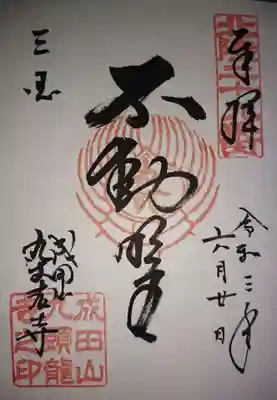 奉拝
令和三年
六月廿日
不動明王
三国
成田山
九頭龍寺
成田山
九頭龍
寺之印